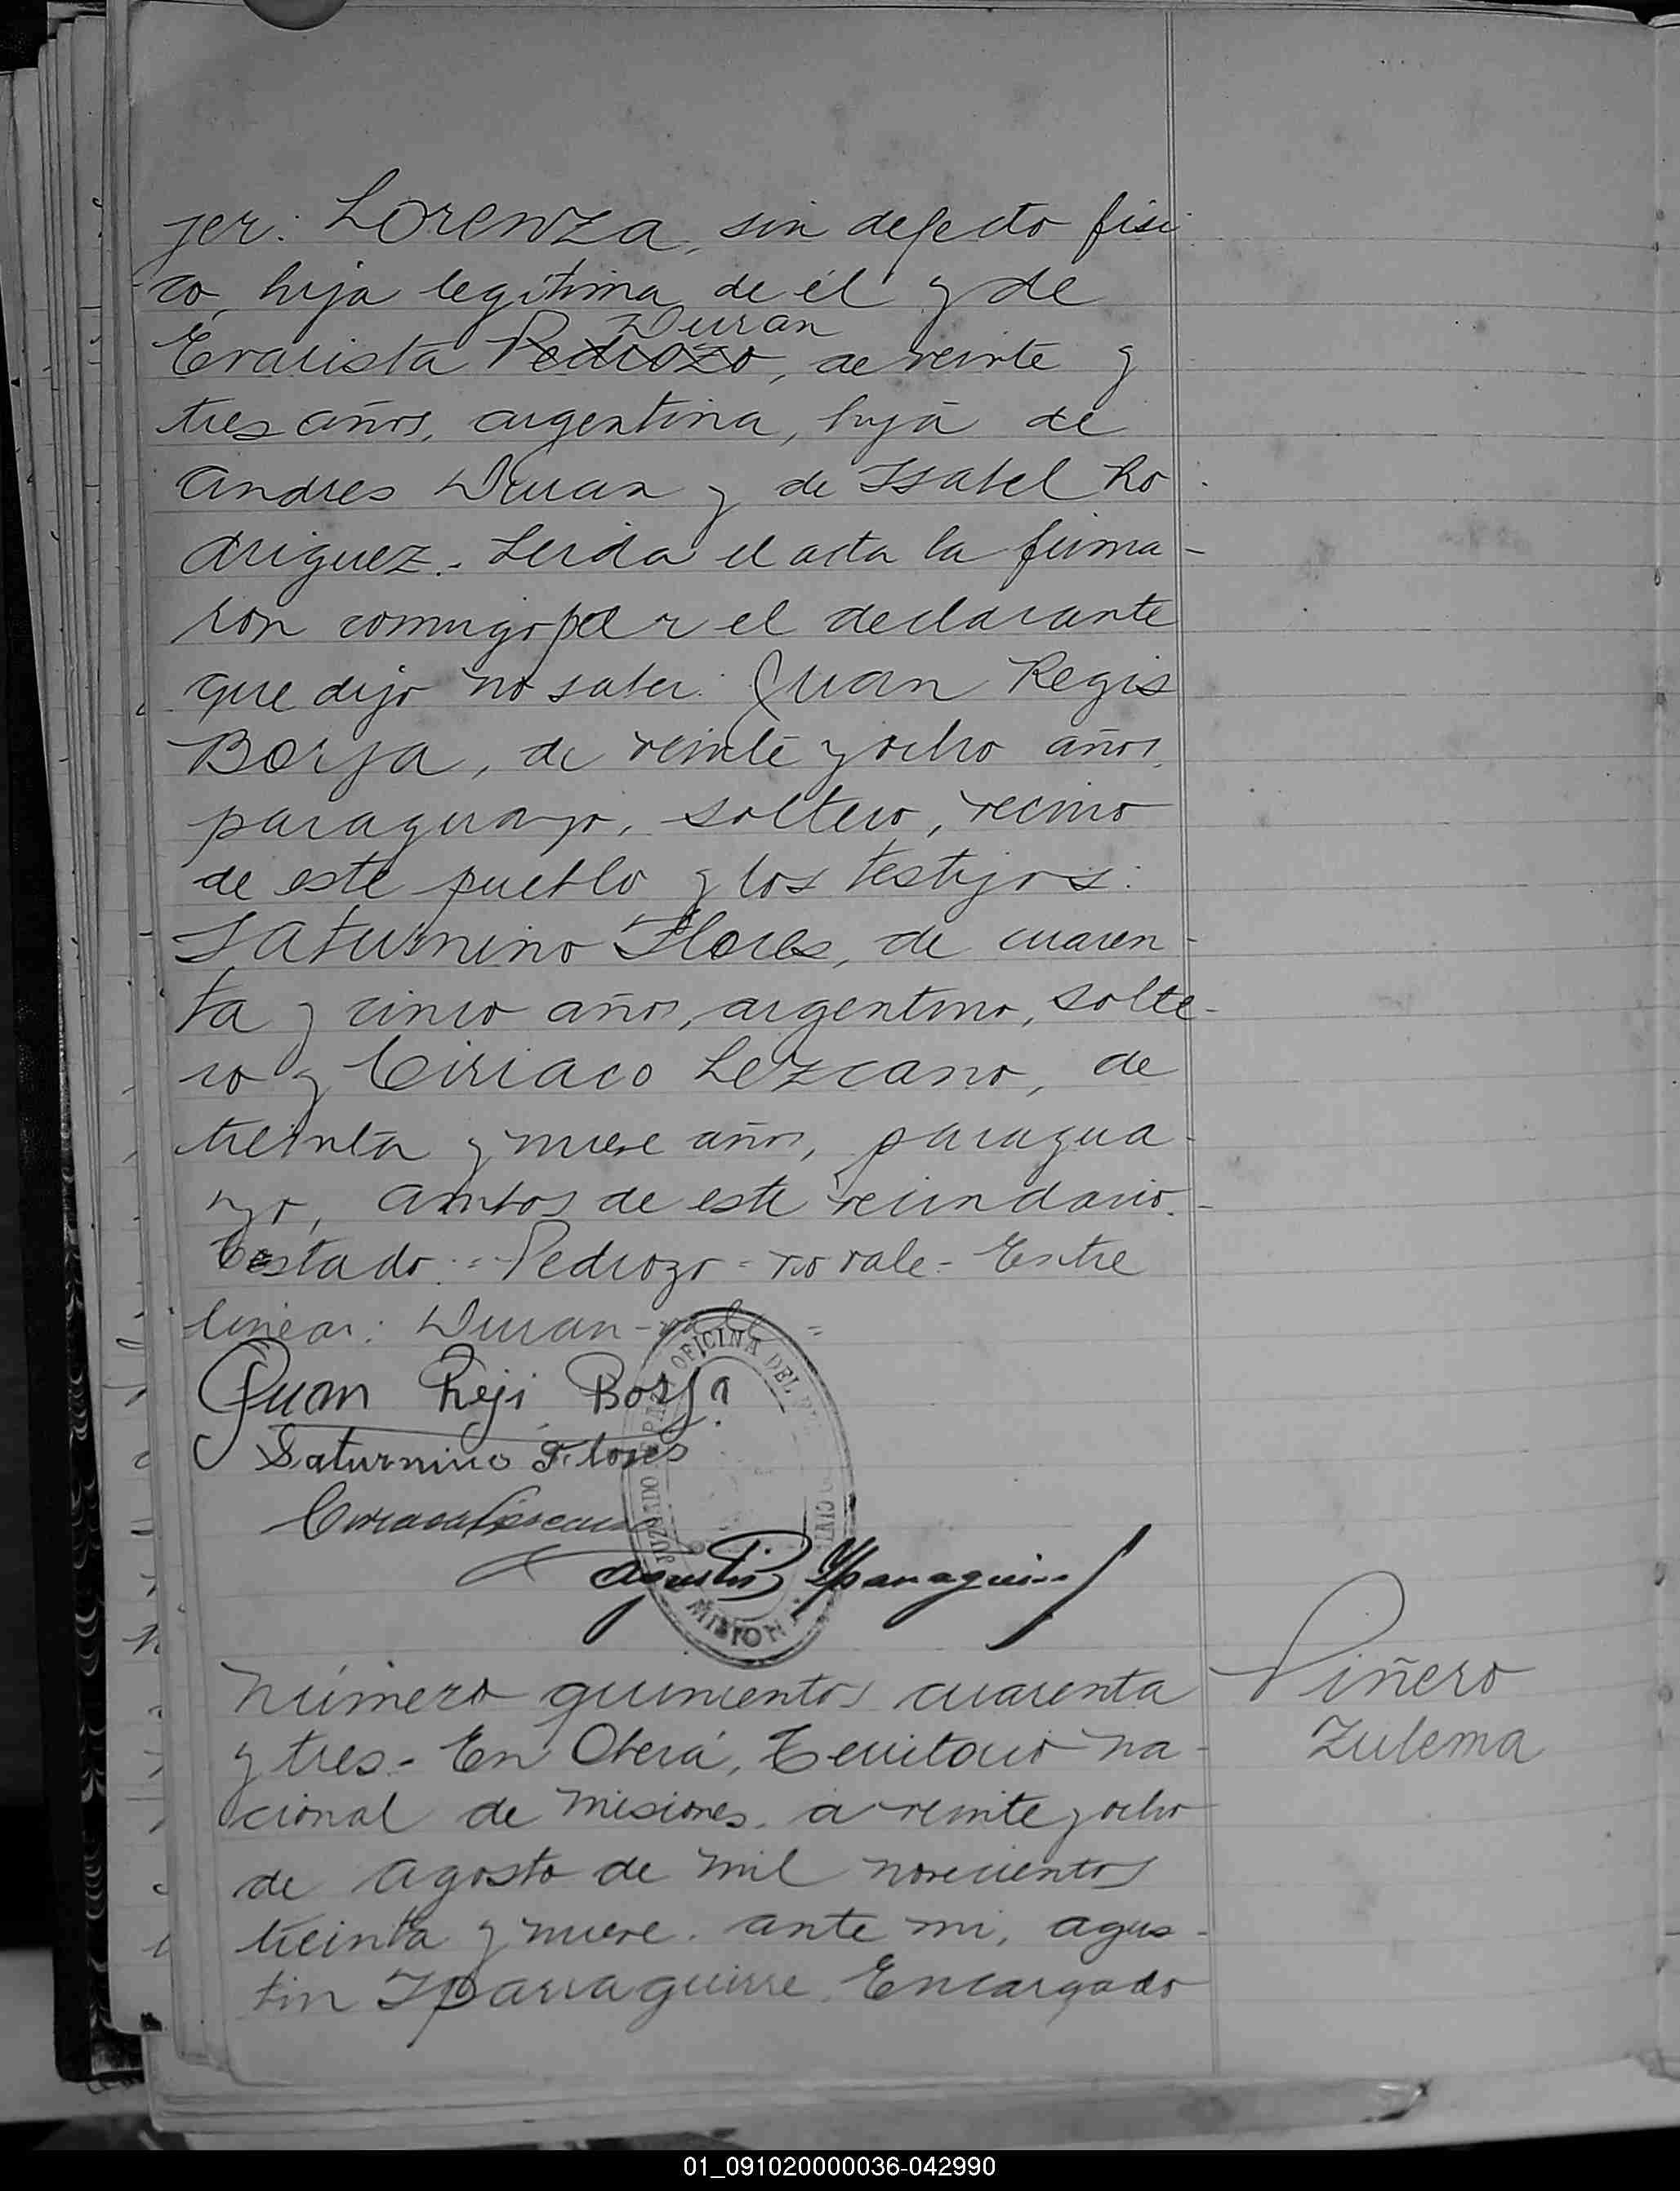 jer: Lorenza, sin defecto fisi
co, hija legítima de él y de
Duran
Evarista Pedrozo, de veinte y
tres años, argentina, hija de
Andres Duran y de Isabel Ro
driguez.- Leida el acta la firma-
ron conmigo por el declarante
que dijo no saber: Juan Regis
Borja, de veinte y ocho años,
paraguayo, soltero, vecino
de este pueblo y los testigos:
Saturnino Flores, de cuaren-
ta y cinco años, argentino, solte-
ro y Ciriaco Lezcano, de
treinta y nueve años, paragua-
yo, ambos de este vecindario.-
Testado:=Pedrozo=no vale- Entre
lineas: Duran-vale=
Juan Reji Borja
Saturnino Flores
Agustin Yparraguirre
JUZGADO DE PAZ OFICINA DEL CIVIL
MISIONES
Número quinientos cuarenta
y tres.- En Oberá, Territorio Na-
cional de Misiones, a veinte y ocho
de Agosto de mil novecientos
treinta y nueve. ante mi, Agus-
tin Iparraguirre, Encargado
Piñero
Zulema
01_091020000036-042990